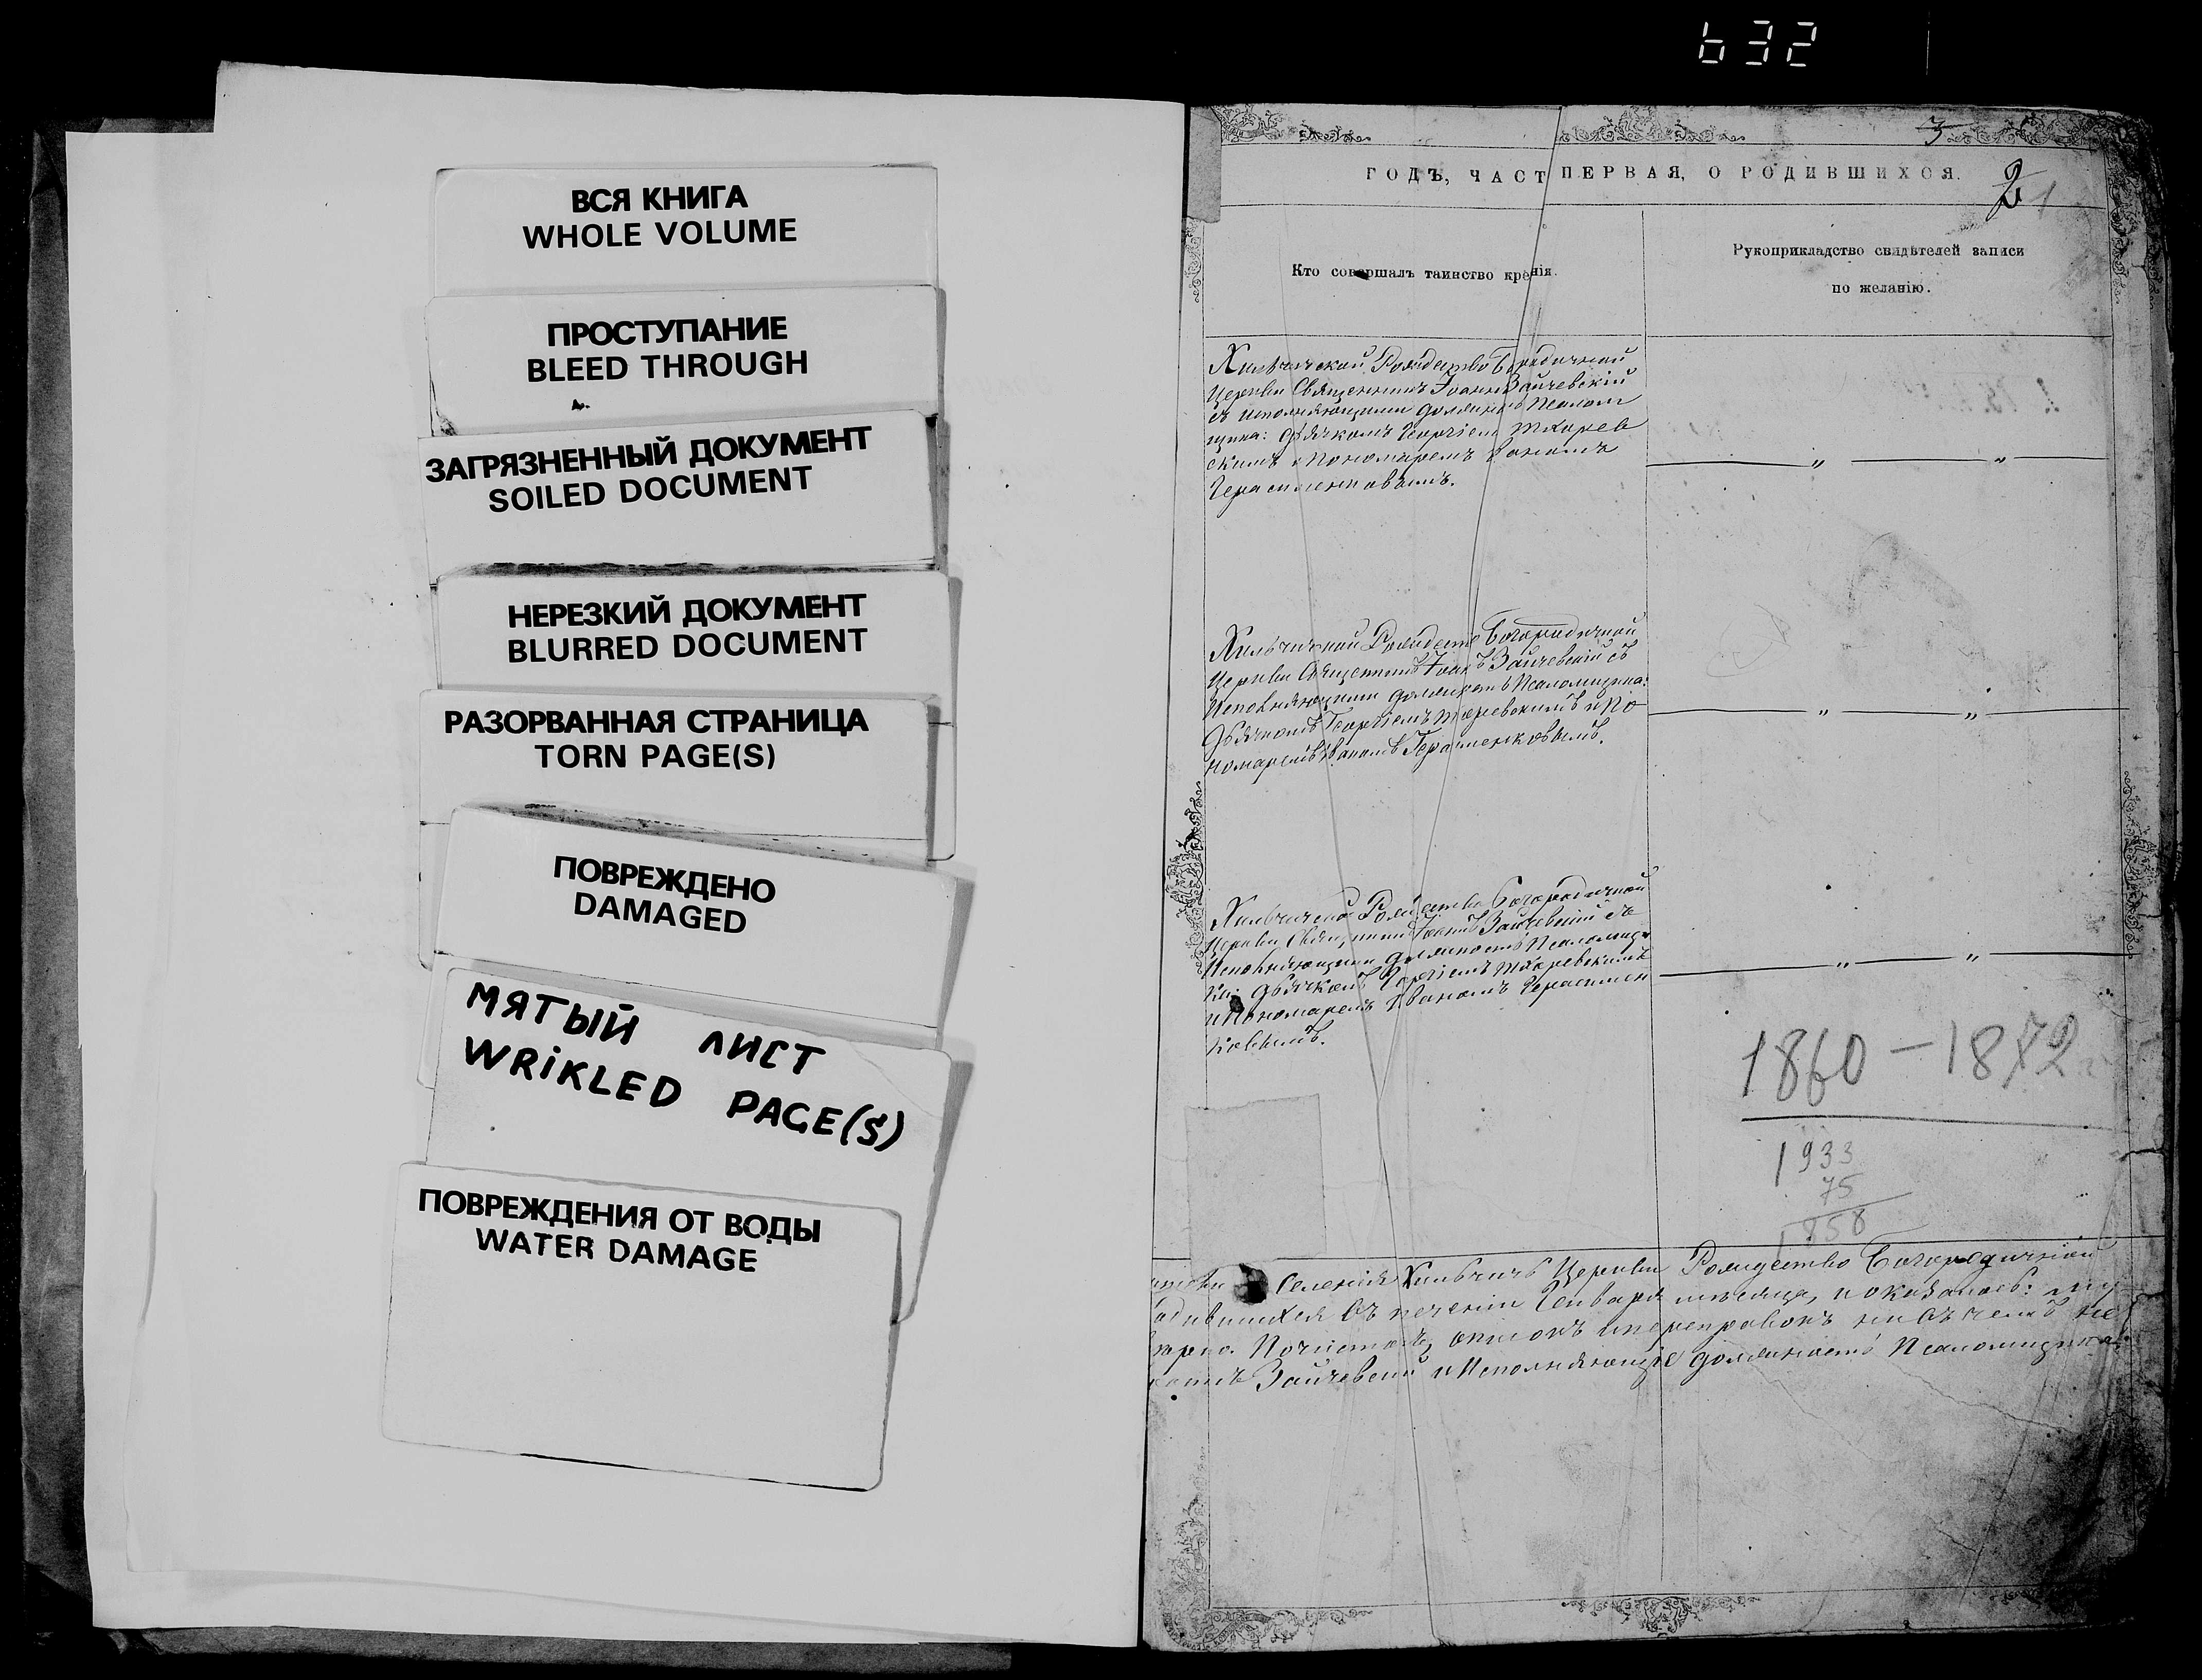 632
ВСЯ КНИГА
WHOLE VOLUME
ПРОСТУПАНИЕ
BLEED THROUGH
ЗАГРЯЗНЕННЫЙ ДОКУМЕНТ
SOILED DOCUMENT
НЕРЕЗКИЙ ДОКУМЕНТ
BLURRED DOCUMENT
РАЗОРВАННАЯ СТРАНИЦА
TORN PAGE(S)
ПОВРЕЖДЕНО
DAMAGED
МЯТЫЙ ЛИСТ
WRiKLED PAGE(S)
ПОВРЕЖДЕНИЯ ОТ ВОДЫ
WATER DAMAGE
3
ГОДЪ, ЧАСТ ПЕРВАЯ, О РОДИВШИХСЯ.
2 1
Кто совершалъ таинство кре нія.
Рукоприкладство свидѣтелей записи
по желанію.
Хильчической Рождество Б родичной
Церкви Священникъ Іоаннъ Зайчевскій
съ исполняющими должность Псалом
щика: дьячкомъ Георгіемъ
скимъ и Пономаремъ Иваномъ
Герасименковымъ.
Хильчичской Рождеств Богородичной
Церкви Священникъ Іоаннъ Зайчевскій съ
Исполняющими должность Псаломщика:
дьячкомъ Георгіемъ и По
номаремъ Иваномъ Герасименковымъ.
Рождество Богородичной
Церкви Священникъ Іоаннъ Зайчевскій съ
Исполняющими должность Псаломщи
ка: дьячкомъ Георгіемъ
и Пономаремъ Иваномъ Герасимен
ковымъ.
1860 – 1872
1933
75
1858
Селенія Хильчичъ Церкви Рождество Богородичной
одившихся въ теченіи Генваря мѣсяца, показалось: му
вѣрно. Почистокъ, описокъ и переправокъ ни въ чемъ не
Зайчевскій и Исполняющіе должность Псаломщика